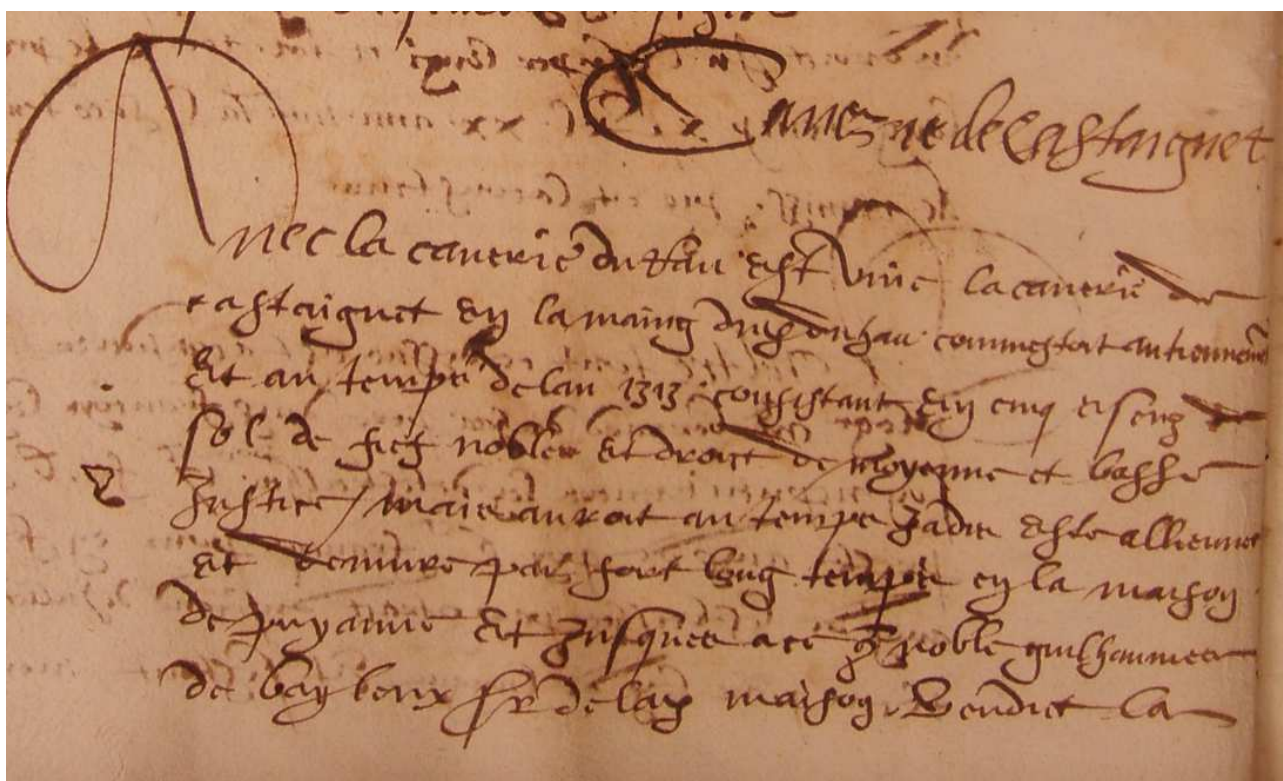 Caverie de Castaignet
Avec la caverie du Hau est unie la caverie de
castaignet en la maing du sr du hau comm'estoit antiennemt
Et au temps de lan 1313 consistant en cinq cens de
sol de fief nobles et droict de moyenne et basse
Justice / mais auroit au temps jadis este allienee
et demuré par fort long temps en la maison
de puyanne et jusques a ce q noble guilhaumes
de baylenx sr de lad maison vendict la